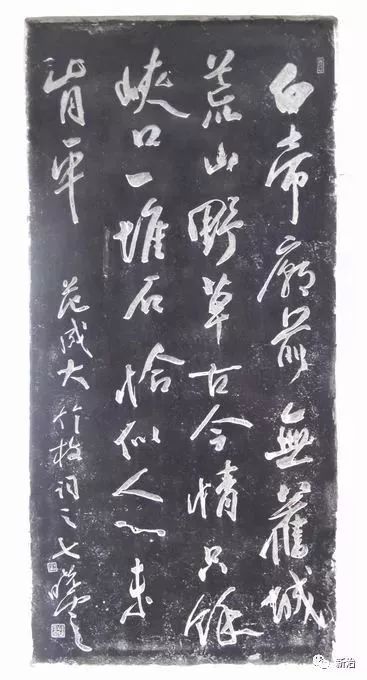 白帝廟前無舊城
荒山野草古今情只餘
峽口一堆石恰似人心未
肯平
范成大竹枝詞之七
新治